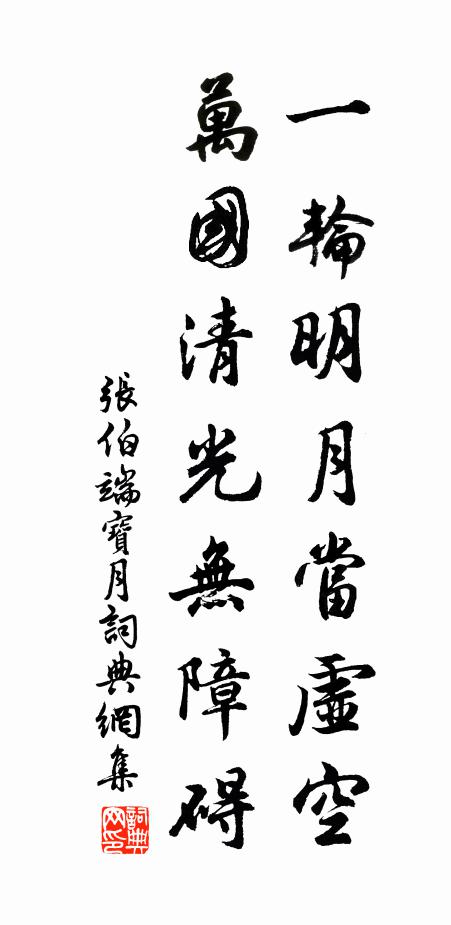 一輪明月當虛空
萬國清光無障碍
張伯端寶月詞典網集
詞典
网印